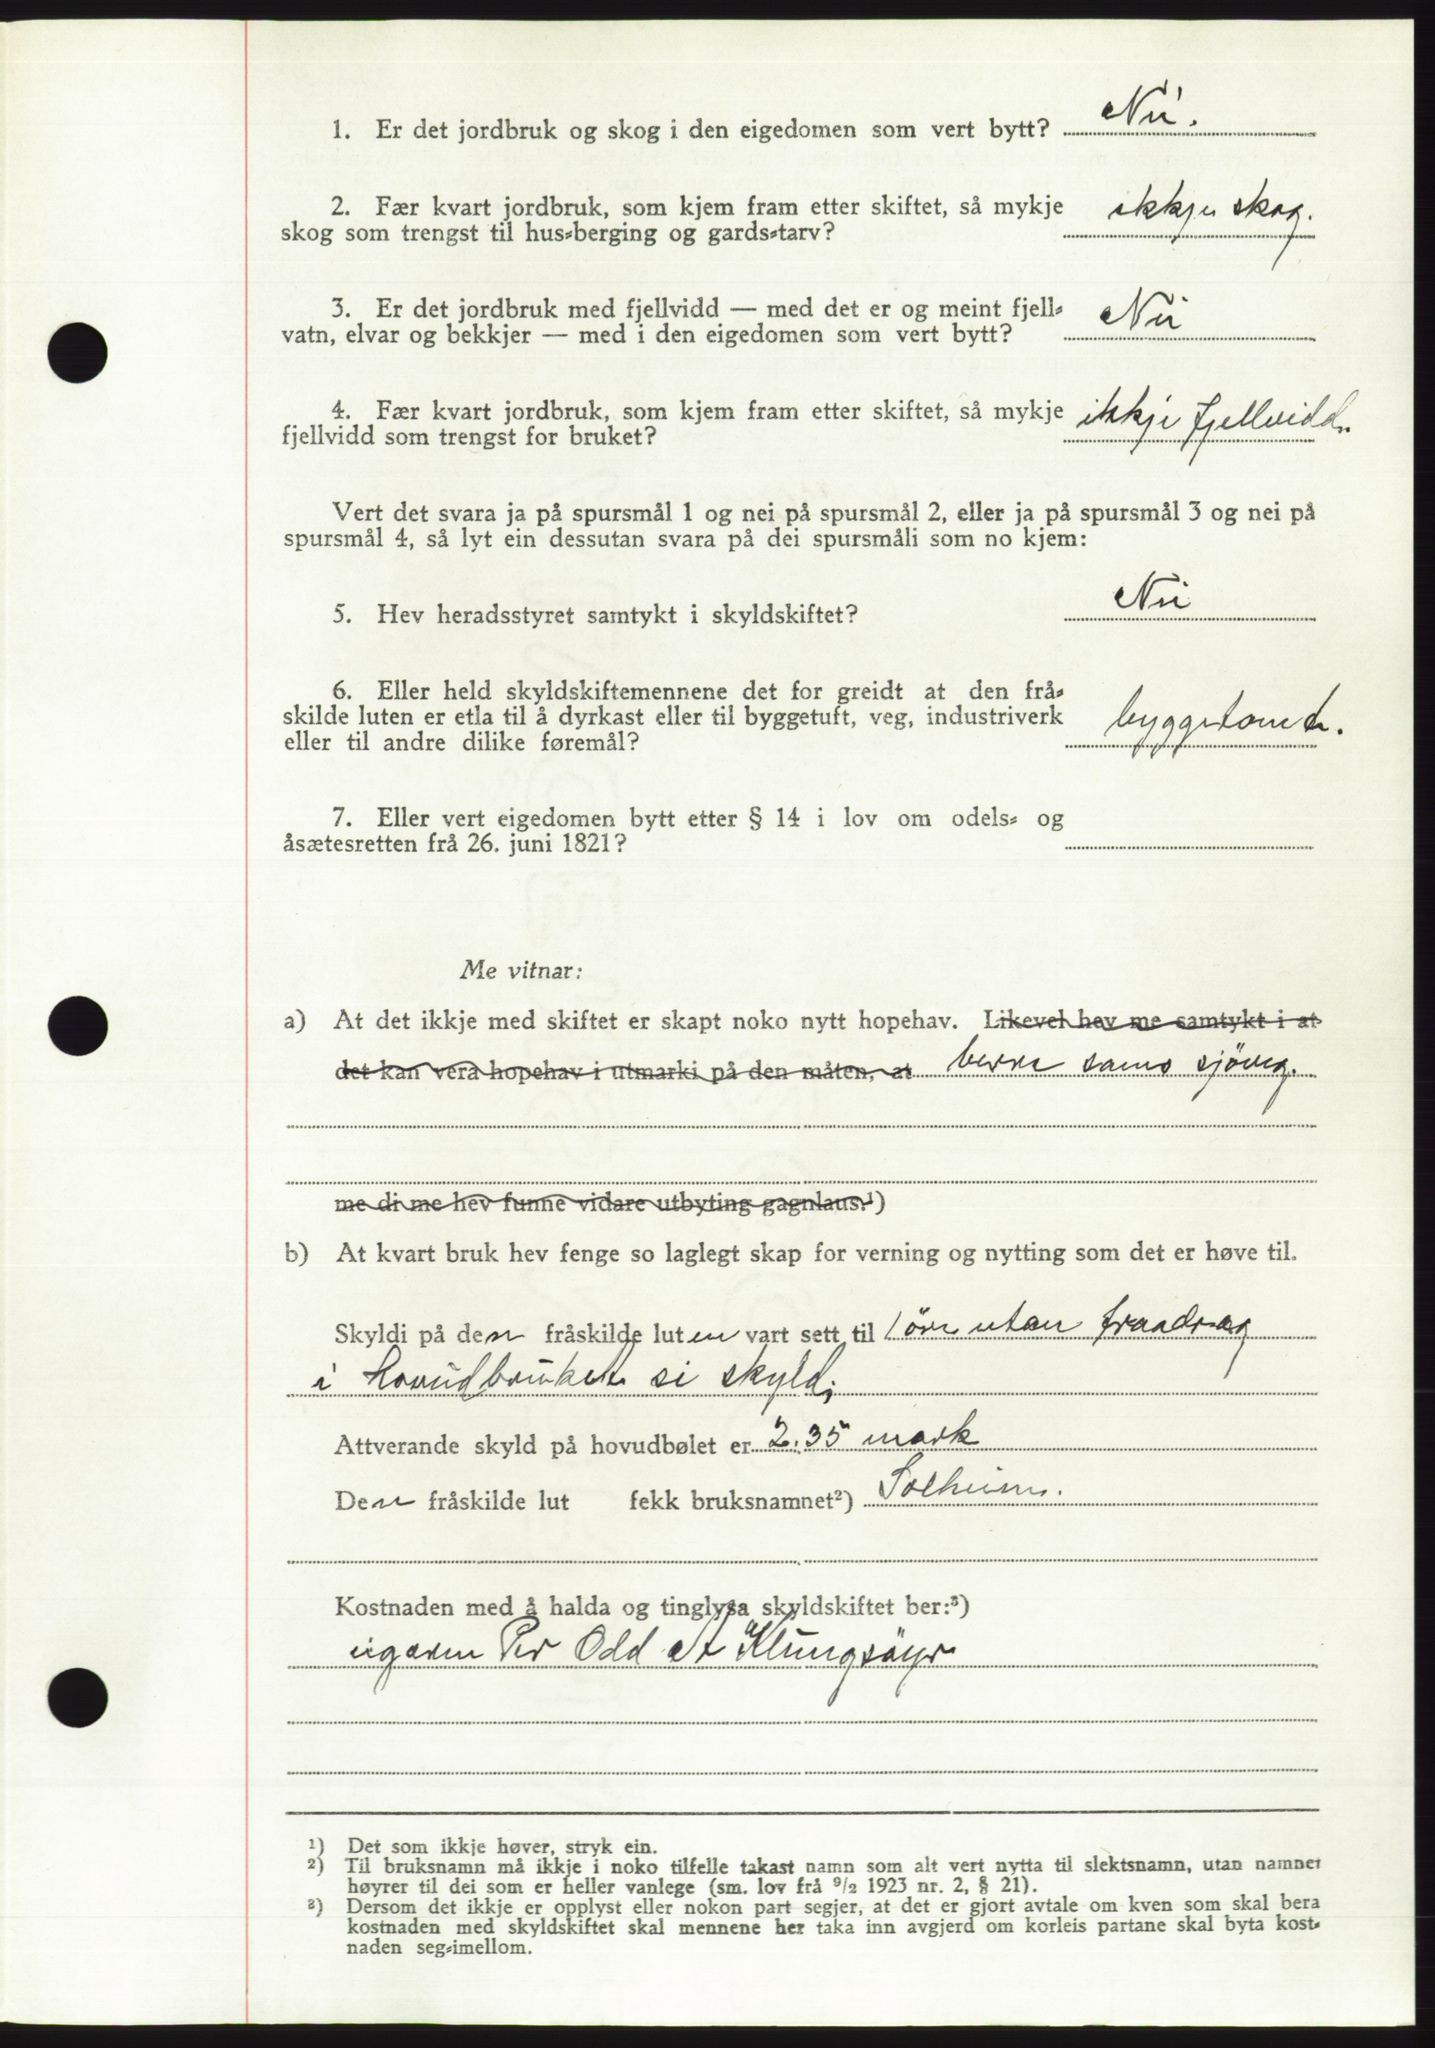 1. Er det jordbruk og skog i den eigedomen som vert bytt? Nei.
2. Fær kvart jordbruk, som kjem fram etter skiftet, så mykje ikkje skog.
skog som trengst til hus-berging og gards-tarv?
3. Er det jordbruk med fjellvidd — med det er og meint fjell- Nei
vatn, elvar og bekkjer — med i den eigedomen som vert bytt?
4. Fær kvart jordbruk, som kjem fram etter skiftet, så mykje ikkje fjellvidd.
fjellvidd som trengst for bruket?
Vert det svara ja på spursmål 1 og nei på spursmål 2, eller ja på spursmål 3 og nei på
spursmål 4, så lyt ein dessutan svara på dei spursmåli som no kjem:
5. Hev heradsstyret samtykt i skyldskiftet? Nei
6. Eller held skyldskiftemennene det for greidt at den frå-
skilde luten er etla til å dyrkast eller til byggetuft, veg, industriverk byggetomt.
eller til andre dilike føremål?
7. Eller vert eigedomen bytt etter § 14 i lov om odels- og
åsætesretten frå 26. juni 1821?
Me vitnar:
a) At det ikkje med skiftet er skapt noko nytt hopehav. Likevel hev me samtykt i at
det kan vera hopehav i utmarki på den måten, at berre sams sjöveg.
me di me hev funne vidare utbyting gagnlaus.¹)
b) At kvart bruk hev fenge so laglegt skap for verning og nytting som det er høve til.
Skyldi på den fråskilde luten vart sett til 1 öre utan fraadrag
i hovudbruket si skyld;
Attverande skyld på hovudbølet er 2.35 mark
Den fråskilde lut fekk bruksnamnet²) Solheim.
Kostnaden med å halda og tinglysa skyldskiftet ber:³)
eigaren Per Odd A. Klungsöyr
¹) Det som ikkje høver, stryk ein.
²) Til bruksnamn må ikkje i noko tilfelle takast namn som alt vert nytta til slektsnamn, utan namnet
høyrer til dei som er heller vanlege (sm. lov frå 9/2 1923 nr. 2, § 21).
³) Dersom det ikkje er opplyst eller nokon part segjer, at det er gjort avtale om kven som skal bera
kostnaden med skyldskiftet skal mennene her taka inn avgjerd om korleis partane skal byta kost-
naden seg-imellom.